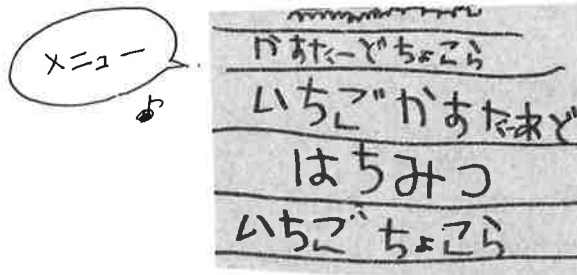 メニュー
かすたーどちょこら
いちごかすたあど
はちみつ
いちごちょこら